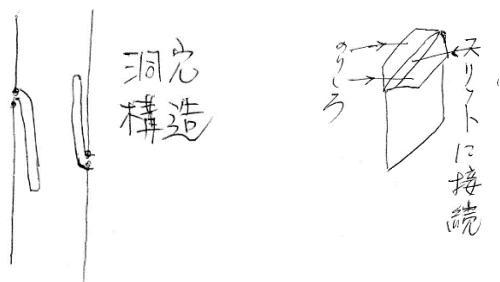 洞穴
構造
のりしろ
スリットに接続